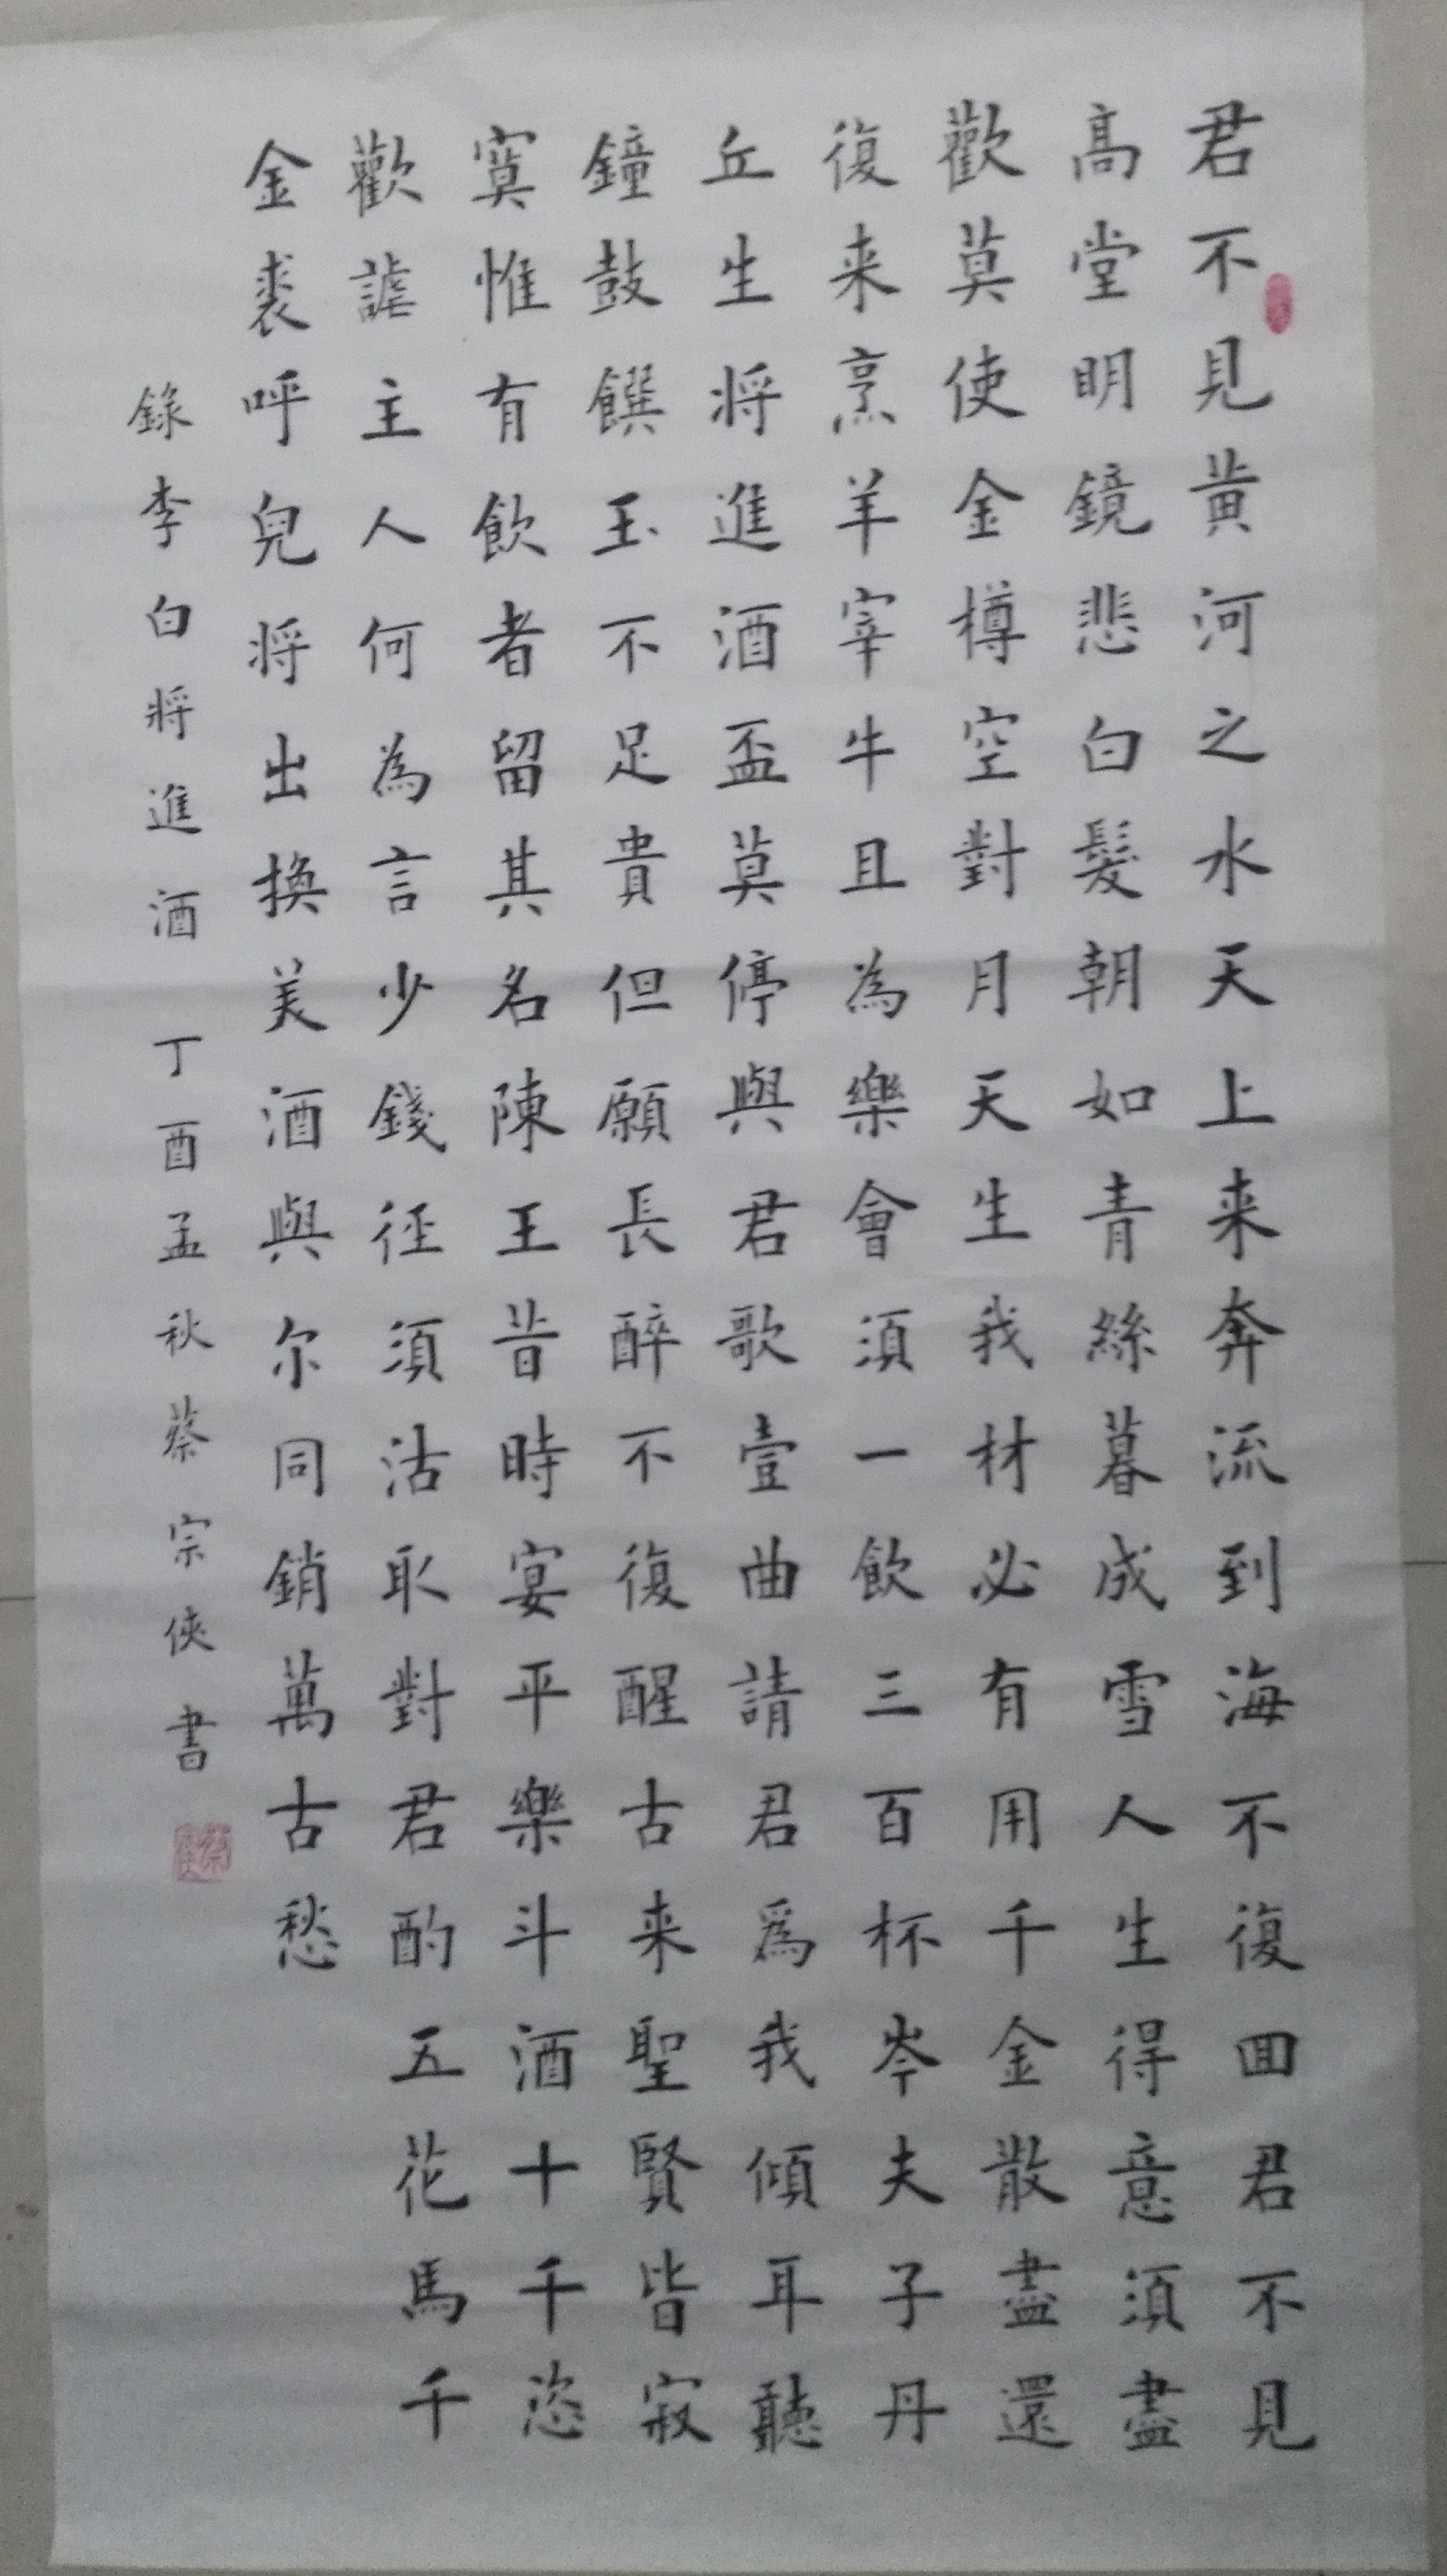 君不見黃河之水天上来奔流到海不復回君不見
高堂明鏡悲白髮朝如青絲暮成雪人生得意須盡
歡莫使金樽空對月天生我材必有用千金散盡還
復来烹羊宰牛且為樂會須一飲三百杯岑夫子丹
丘生将進酒盃莫停與君歌壹曲請君為我傾耳聽
鐘鼓饌玉不足貴但願長醉不復醒古来聖賢皆寂
寞惟有飲者留其名陳王昔時宴平樂斗酒十千恣
歡謔主人何為言少錢徑須沽取對君酌五花馬千
金裘呼兒将出換美酒與尔同銷萬古愁
錄李白將進酒 丁酉孟秋蔡宗俠書